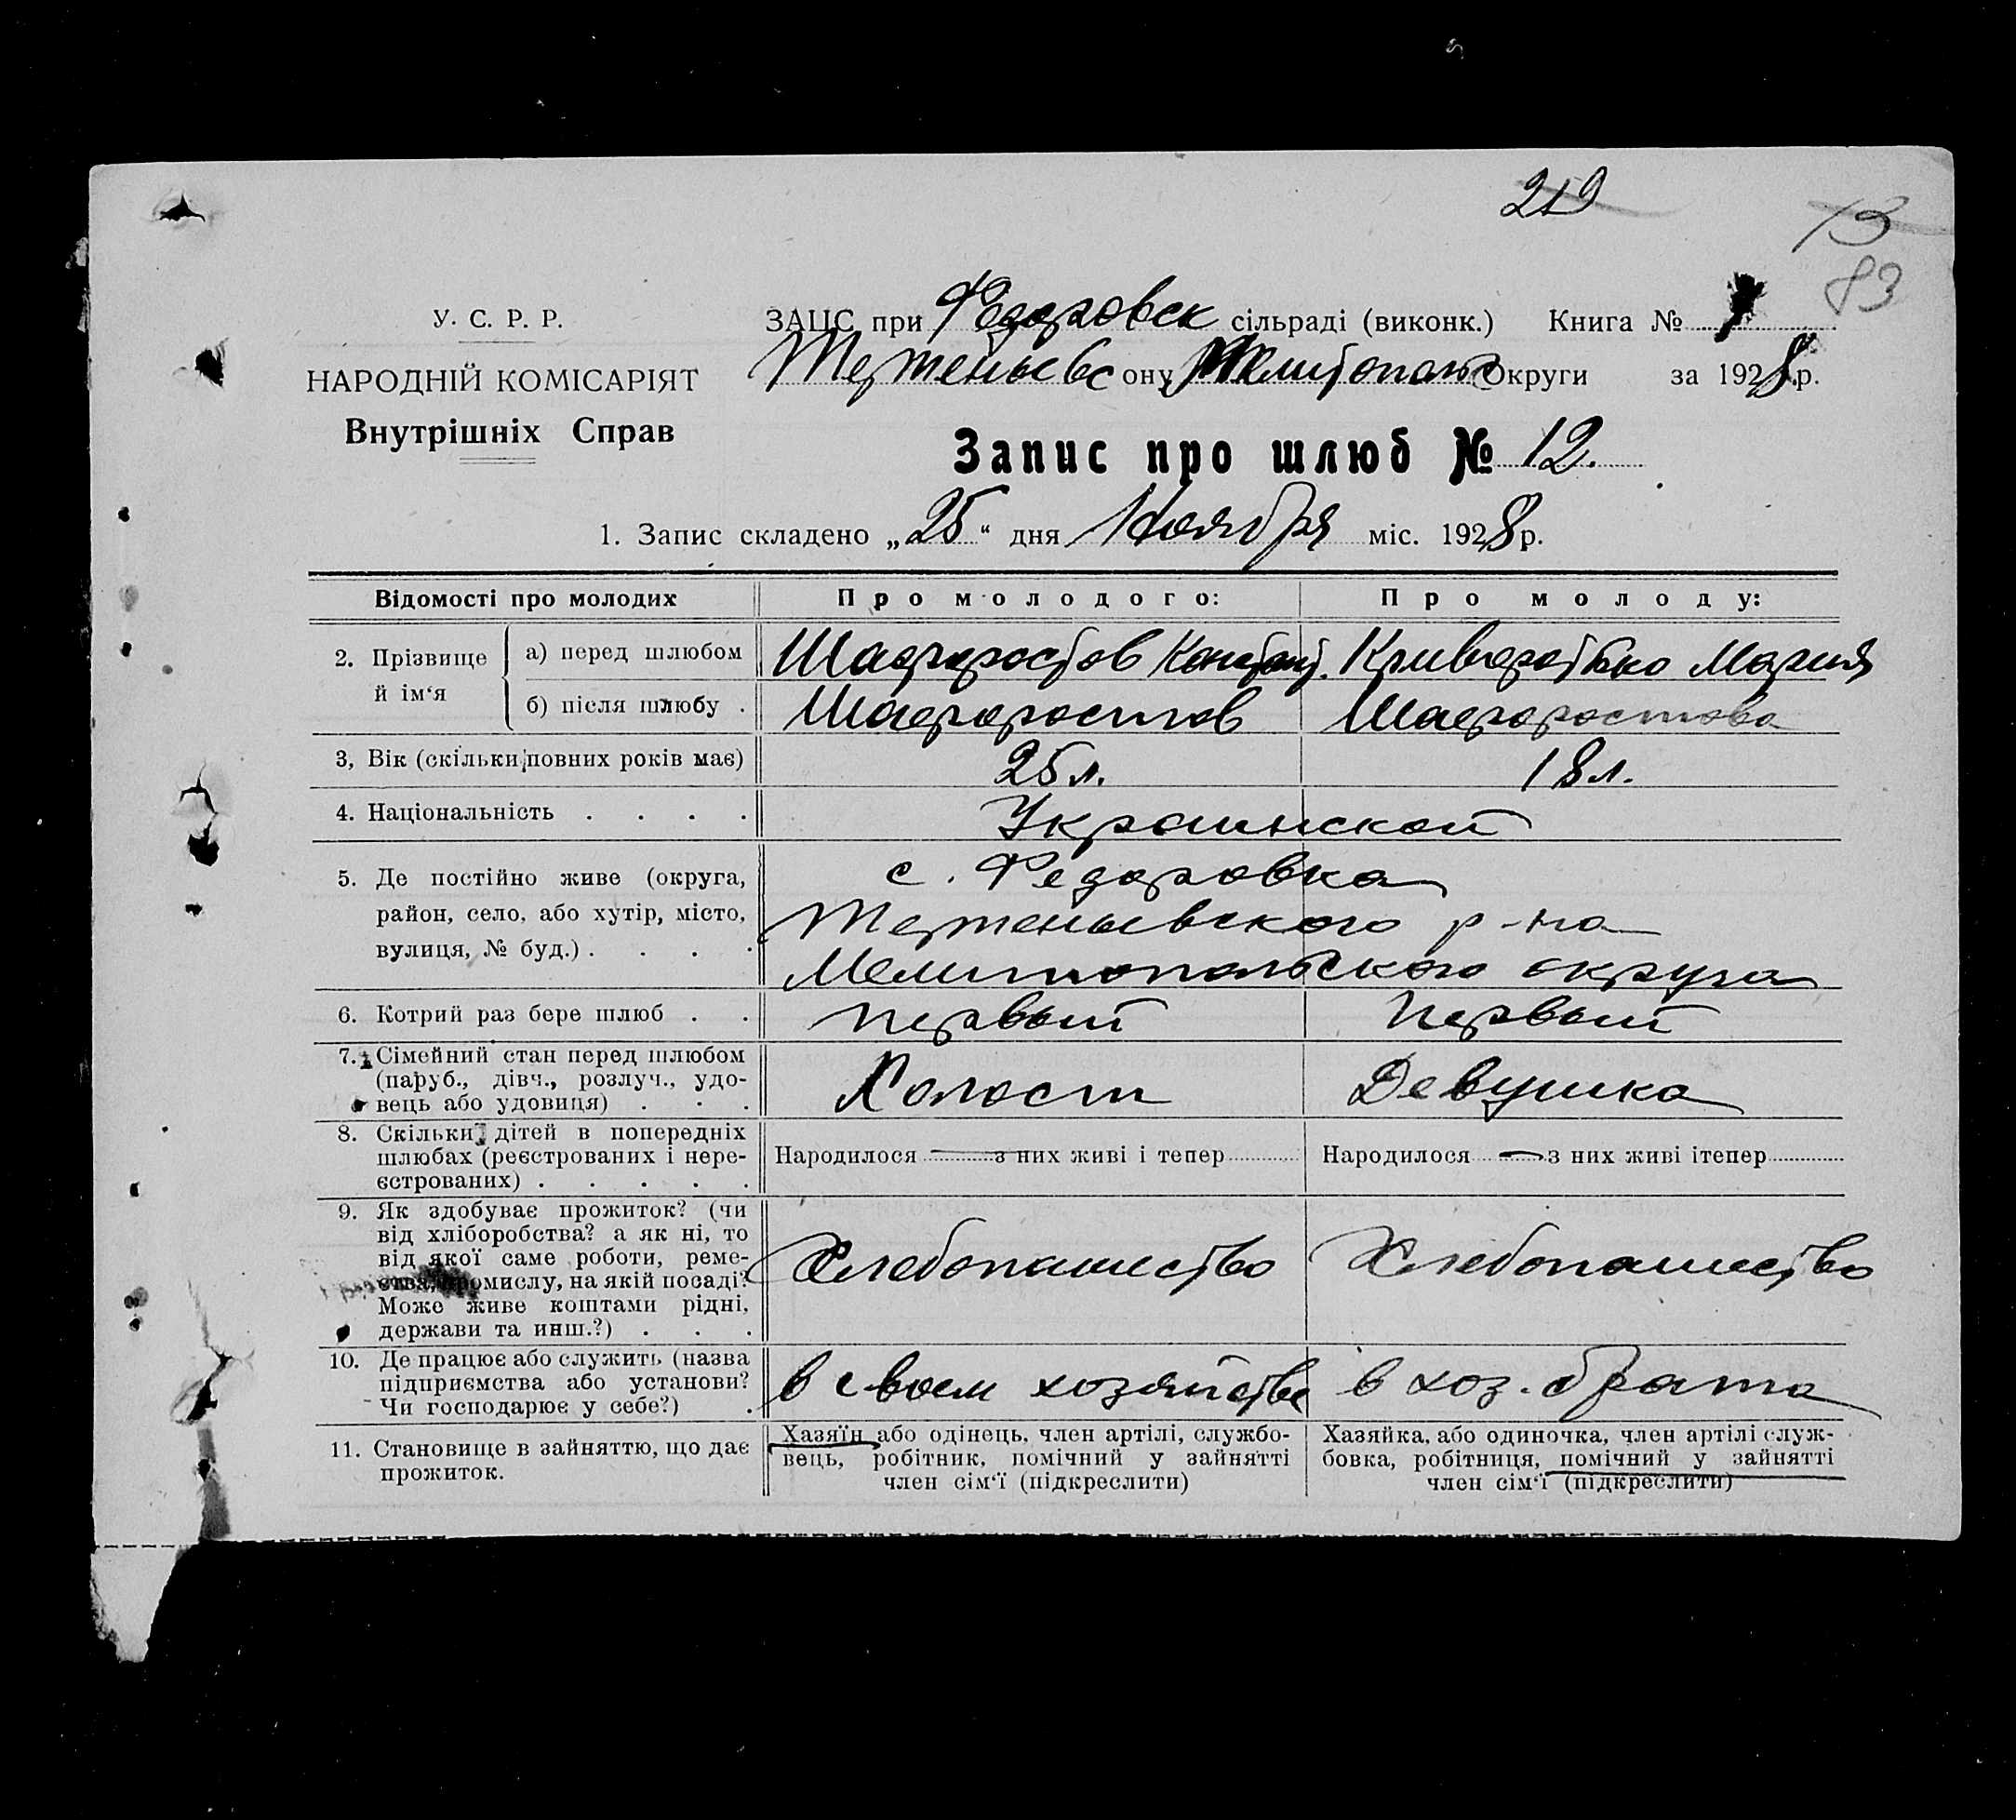 212
13
83
У. С. Р. Р.
НАРОДНІЙ КОМІСАРІЯТ
Внутрішніх Справ
ЗАЦС при Федоровск сільраді (виконк.) Книга №
ону Мелитопольс Округи за 1928 р.
Запис про шлюб № 12.
1. Запис складено „25“ дня Ноября міс. 1928 р.
Відомості про молодих
Про молодого:
Про молоду:
2. Прізвище й ім‘я
а) перед шлюбом
Шафоростов Констант.
Мария
б) після шлюбу .
Шафоростов
Шафоростова
3, Вік (скільки повних років має)
25 л.
18 л.
4. Національність . . . .
Украинской
5. Де постійно живе (округа,
район, село, або хутір, місто,
вулиця, № буд.) . . . .
с. Федоровка
р-на
Мелитопольского округа
6. Котрий раз бере шлюб . .
первый
первый
7. Сімейний стан перед шлюбом
(паруб., дівч., розлуч., удо-
вець або удовиця) . . .
Холост
Девушка
8. Скільки дітей в попередніх
шлюбах (реєстрованих і нере-
єстрованих) . . . . .
Народилося — з них живі і тепер
Народилося — з них живі ітепер
9. Як здобуває прожиток? (чи
від хліборобства? а як ні, то
від якої саме роботи, реме-
ства, промислу, на якій посаді?
Може живе коштами рідні,
держави та инш.?) . . .
Хлебопашество
Хлебопашество
10. Де працює або служить (назва
підприємства або установи?
Чи господарює у себе?) .
в своем хозяйстве
в хоз. брата
11. Становище в зайняттю, що дає
прожиток.
Хазяїн або одінець, член артілі, службо-
вець, робітник, помічний у зайнятті
член сім‘ї (підкреслити)
Хазяйка, або одиночка, член артілі служ-
бовка, робітниця, помічний у зайнятті
член сім‘ї (підкреслити)